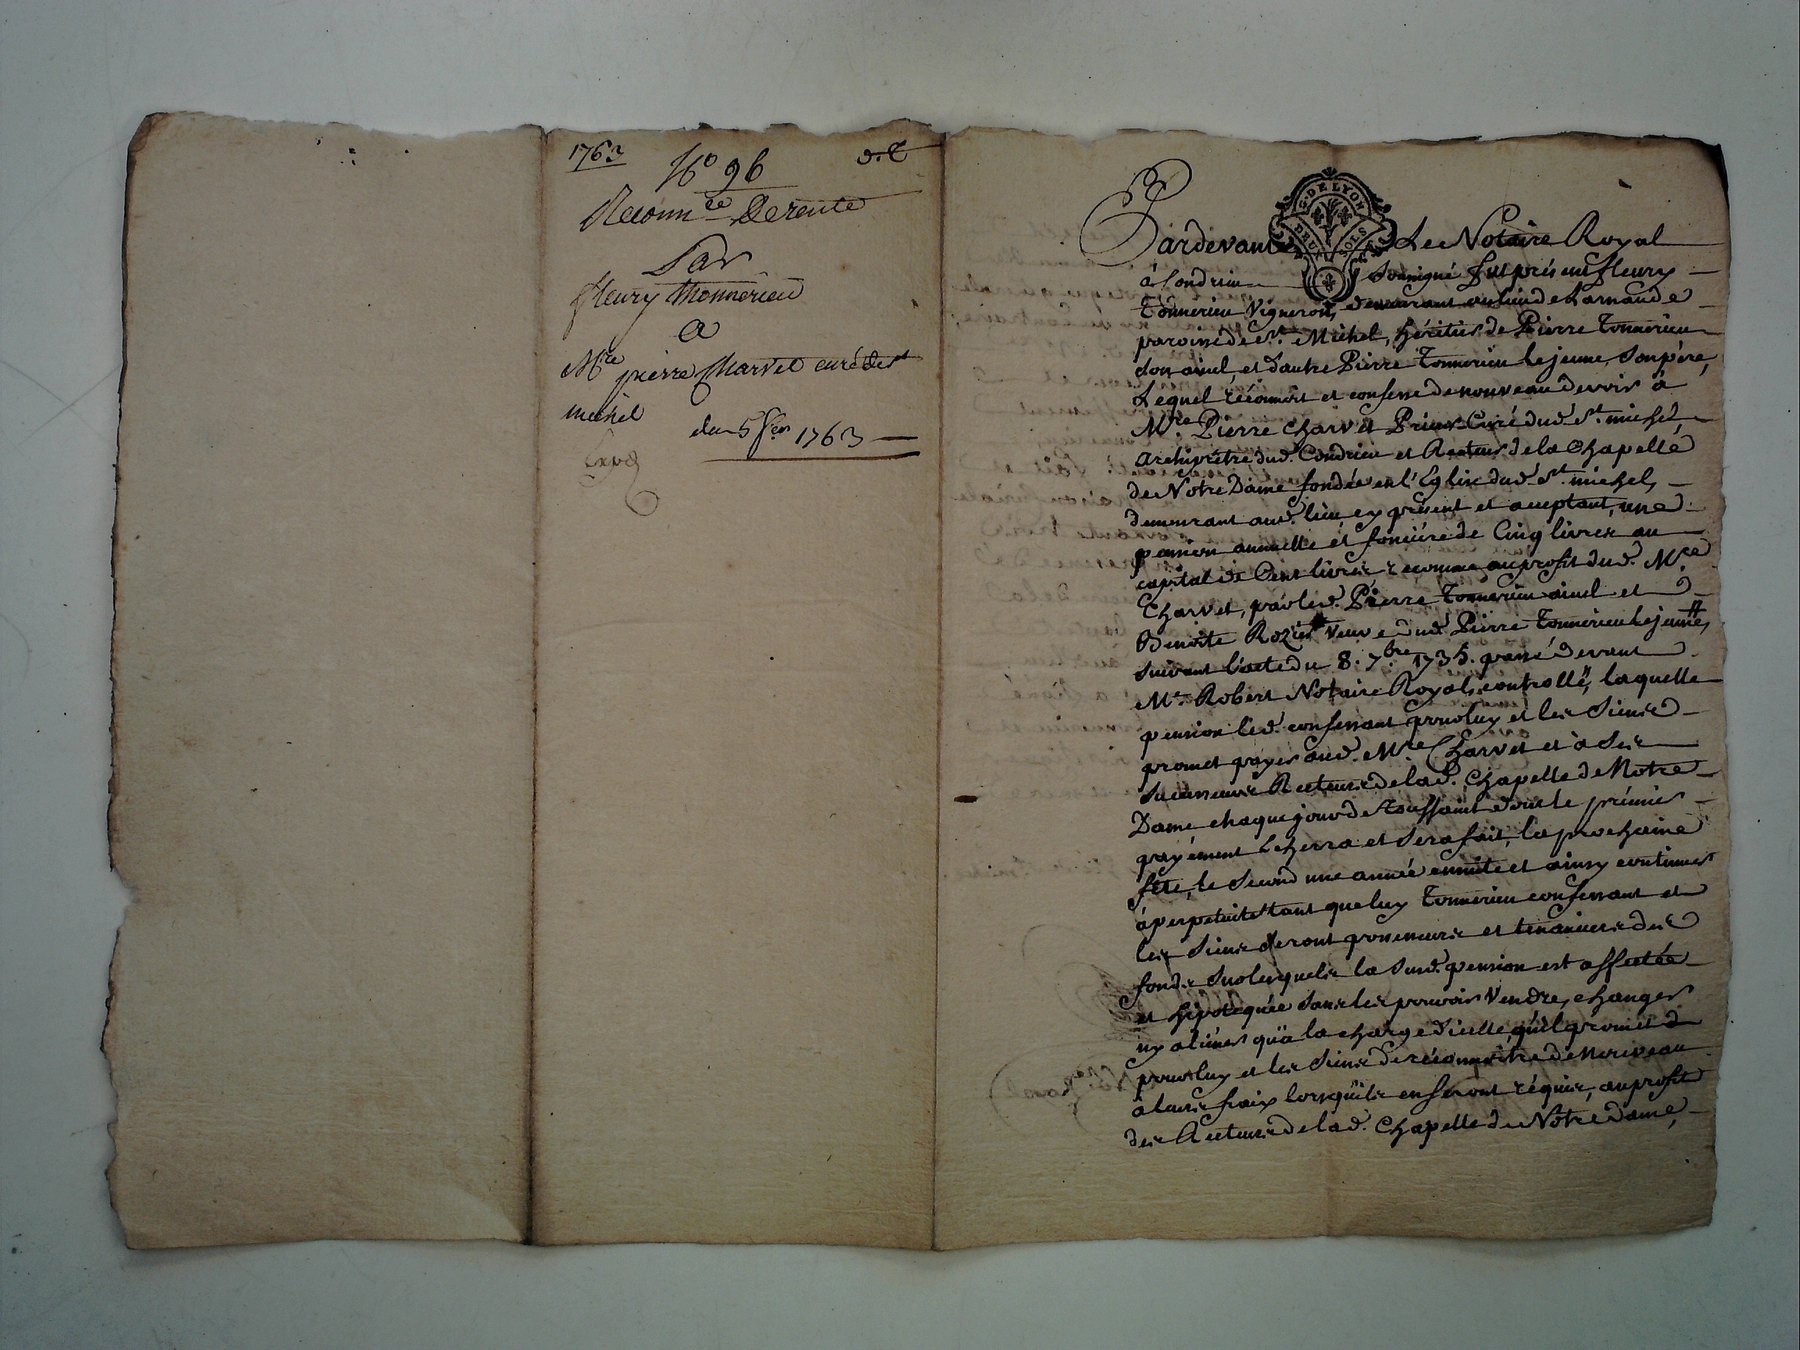 1763
N° 96
d.C
Reconn.ce De rente
Par
fleury thonnerieu
a
Mre pierre Charvet curé de st
michel
du 5 fer 1763
expé
G. DE LYON
DEUX SOLS
Pardevant Le Notaire Royal
à Condrieu Soussigné fut présent fleury
Tonnerieu Vigneron, demeurant au lieu de Larnaude
paroisse de St. Michel, héritier de Pierre Tonnerieu
son aieul, et d'autre Pierre Tonnerieu Lejeune Son père,
Lequel réconnoit et confesse de nouveau devoir à
Mre. Pierre Charvet Prieur Curé dud. St. michel,
archiprêtre dud. Condrieu et Recteur de la Chapelle
de Notre Dame fondée en l'Eglise dud. St. michel,
demeurant aud. lieu, cy présent et acceptant, une
pension annuelle et fonciére de Cinq livres au
capital de Cent livres reconnue au profit dud. Mre.
Charvet, par led. Pierre Tonnerieu aieul et
Benoite Rozier Veuve dud. Pierre Tonnerieu Lejeune,
suivant l'acte du 8. 7.bre 1735. passé devant
Me. Robert Notaire Royal, controllé, laquelle
pension led. confessant pour luy et les Siens
promet payer aud. Mre Charvet et à Ses
successeurs Recteurs de lad. Chapelle de Notre
Dame chaque jour de toussaint dont le prémier
payément écherra et Sera fait, la prochaine
fête, le Second une année ensuite et ainsy continuer
à perpetuité tant que luy Tonnerieu confessant et
les Siens Seront possesseurs et tenanciers des
fonds Sur lesquels la Susd. pension est affectée
et hipotequée Sans les pouvoir Vendre, echanger
ny aliéner qu'à la charge d'icelle, qu'il promet
pour luy et les Siens de réconnoitre de Nouveau
à leurs fraix lorsqu'ils en seront réquis, au profit
des Recteurs de lad. Chapelle de Notre Dame,